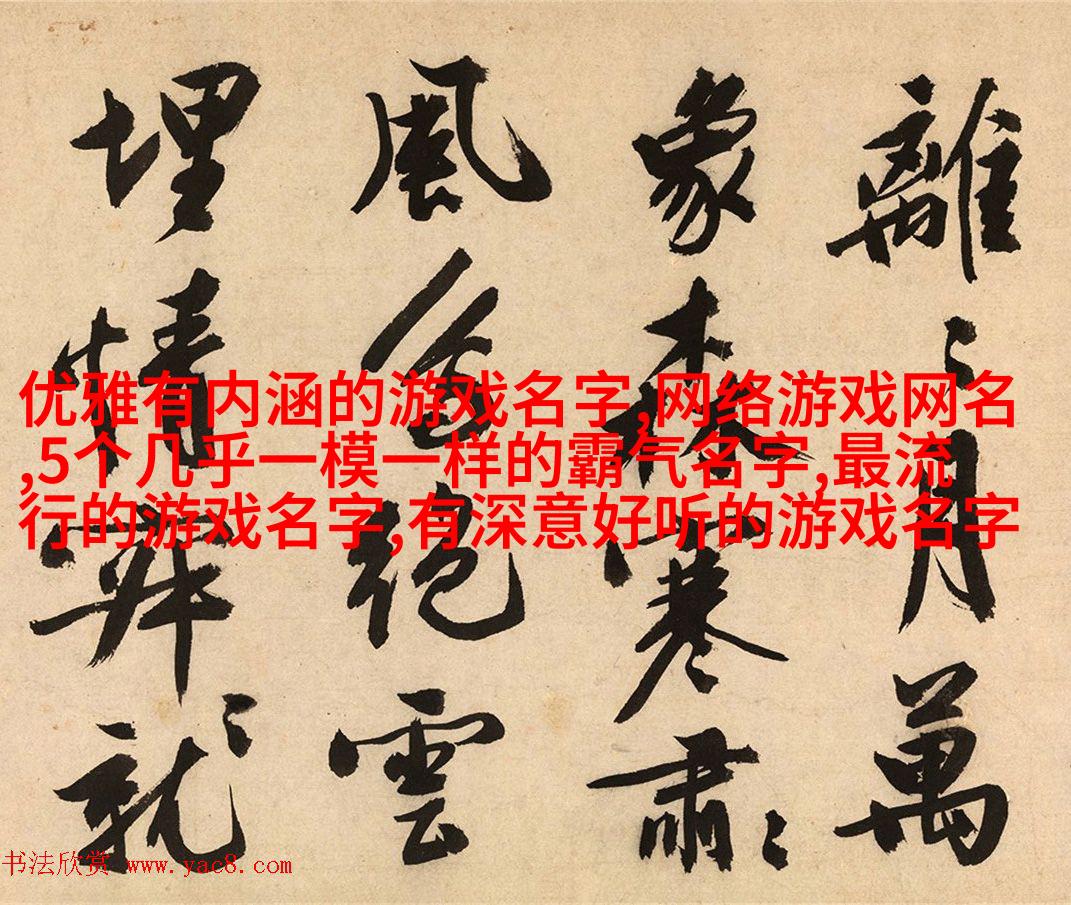 離〻月萬
象森寒肅〻
風色絶雲
埋情〻就
优雅有内涵的游戏名字,网络游戏网名
,5个几乎一模一样的霸气名字,最流
行的游戏名字,有深意好听的游戏名字
书法欣赏 www.yac8.com